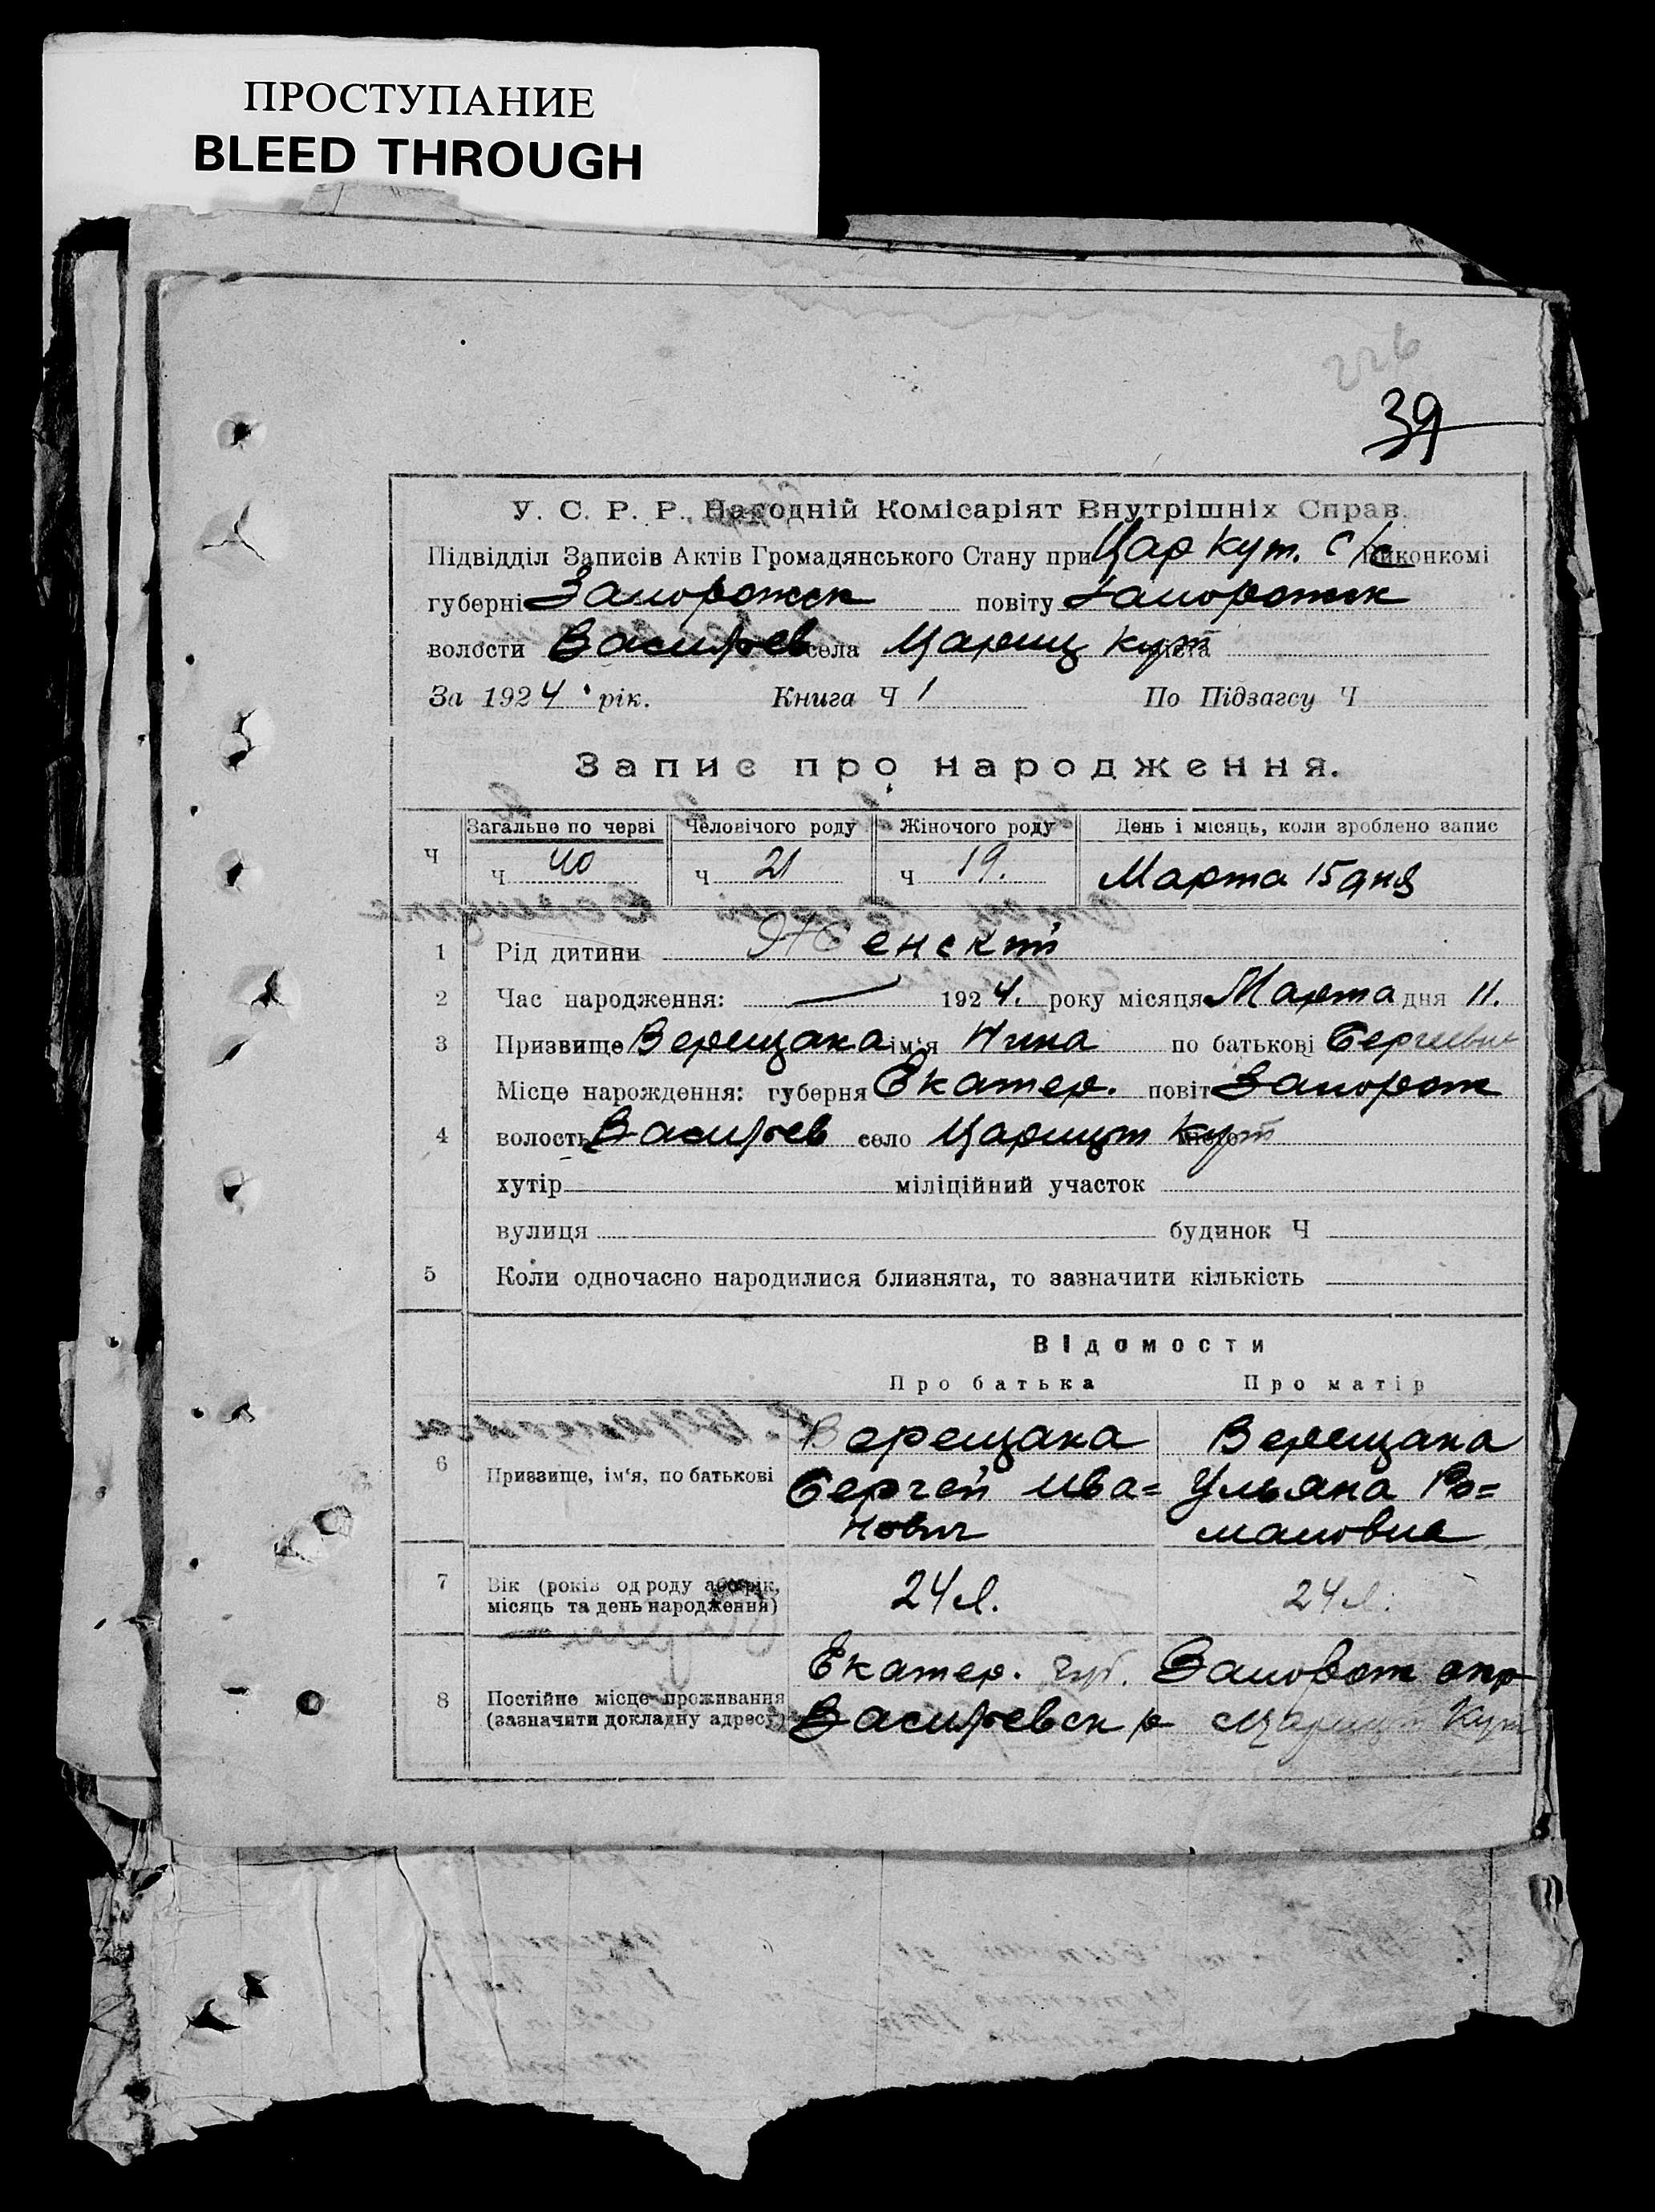 ПРОСТУПАНИЕ
BLEED THROUGH
226
39
У. С. Р. Р. Народній Комісаріят Внутрішніх Справ.
Підвідділ Записів Актів Громадянського Стану при Цар Кут. с/с виконкомі
губерні Запорожск повіту Запорожск
волости Васильев села Цариц Кут міста
За 1924 рік. Книга Ч 1 По Підзагсу Ч
Запис про народження.
Загальне по черзі Человічого роду Жіночого роду День і місяць, коли зроблено запис
Ч Ч 40 Ч 21 Ч 19. Марта 15 дня
1 Рід дитини Женский
2 Час народження: — 1924. року місяця Марта дня 11.
3 Призвище Верещака ім'я Нина по батькові Сергиевна
Місце народження: губерня Екатер. повіт Запорож
4 волость Васильев село Царицын Кут місто
хутір міліційний участок
вулиця будинок Ч
5 Коли одночасно народилися близнята, то зазначити кількість
Відомости
Про батька Про матір
6 Призвище, ім'я, по батькові Верещака Верещака
Сергей Ива= Ульяна Ро=
нович мановна
7 Вік (років од роду або рік, місяць та день народження) 24 л. 24 л.
8 Постійне місце проживання (зазначити докладну адресу) Екатер. губ. Запорож окр
Васильевск р Царицын Кут